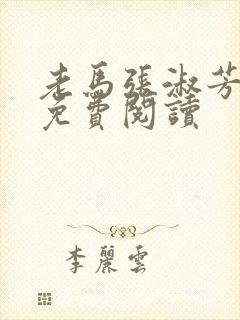 老馬張淑芳
免費閱讀
李麗雲